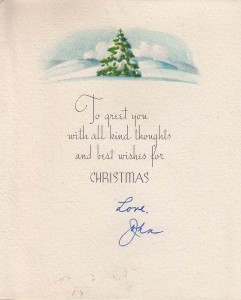 To greet you
with all kind thoughts
and best wishes for
CHRISTMAS
Love,
John